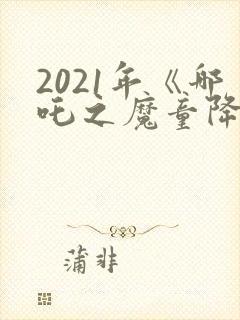 2021年《哪
吒之魔童降
蒲非